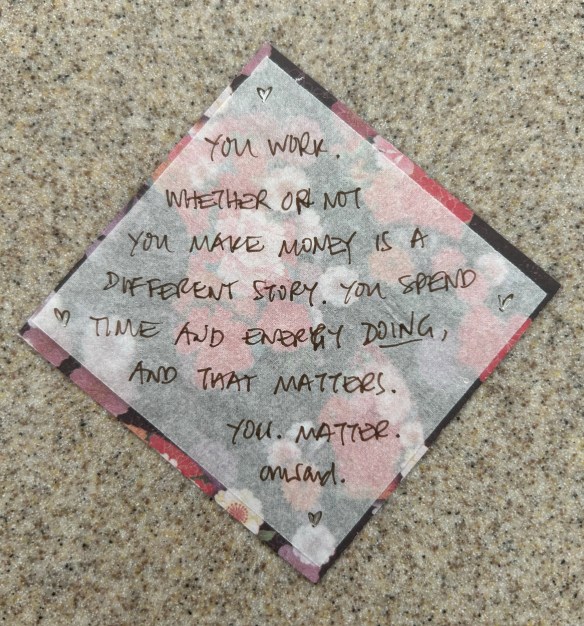 YOU WORK.
WHETHER OR NOT
YOU MAKE MONEY IS A
DIFFERENT STORY. YOU SPEND
TIME AND ENERGY DOING,
AND THAT MATTERS.
YOU. MATTER.
onward.